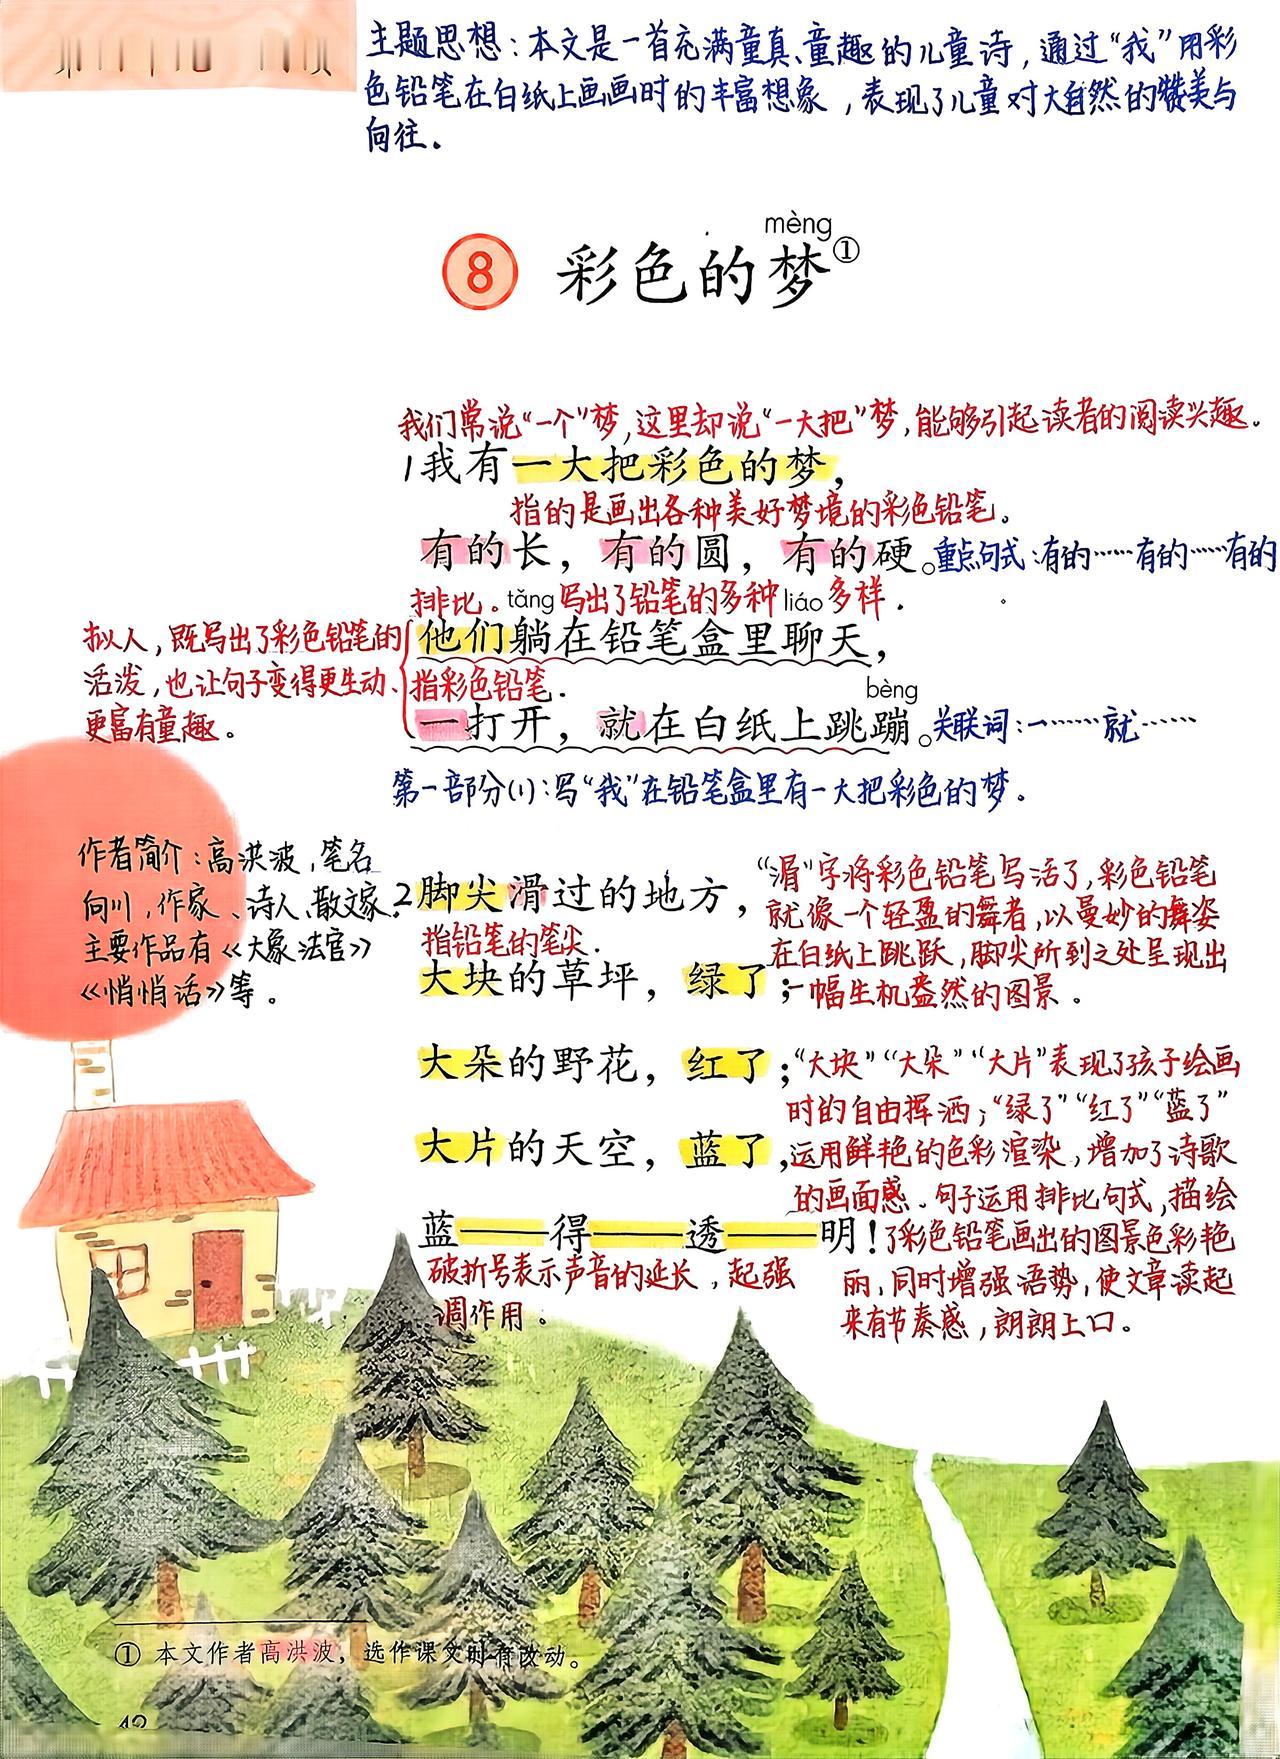 主题思想：本文是一首充满童真、童趣的儿童诗，通过“我”用彩
色铅笔在白纸上画画时的丰富想象，表现了儿童对大自然的赞美与
向往.
mèng
8 彩色的梦①
我们常说“一个”梦,这里却说“一大把”梦,能够引起读者的阅读兴趣。
1我有一大把彩色的梦，
指的是画出各种美好梦境的彩色铅笔。
有的长，有的圆，有的硬。重点句式：有的……有的……有的
排比。tǎng写出了铅笔的多种liáo多样.
拟人，既写出了彩色铅笔的
活泼，也让句子变得更生动、
更富有童趣。
他们躺在铅笔盒里聊天，
指彩色铅笔.
bèng
一打开，就在白纸上跳蹦。关联词：一……就……
第一部分(1)：写“我”在铅笔盒里有一大把彩色的梦.
作者简介：高洪波,笔名
向川,作家、诗人、散文家.
主要作品有《大象法官》
《悄悄话》等。
2脚尖滑过的地方，
指铅笔的笔尖.
大块的草坪，绿了；
“滑”字将彩色铅笔写活了,彩色铅笔
就像一个轻盈的舞者,以曼妙的舞姿
在白纸上跳跃,脚尖所到之处呈现出
一幅生机盎然的图景。
大朵的野花，红了；
大片的天空，蓝了，
蓝——得——透——明！
破折号表示声音的延长，起强
调作用。
“大块”“大朵”“大片”表现了孩子绘画
时的自由挥洒；“绿了”“红了”“蓝了”
运用鲜艳的色彩渲染,增加了诗歌
的画面感.句子运用排比句式,描绘
了彩色铅笔画出的图景色彩艳
丽,同时增强语势,使文章读起
来有节奏感,朗朗上口。
① 本文作者高洪波，选作课文时有改动。